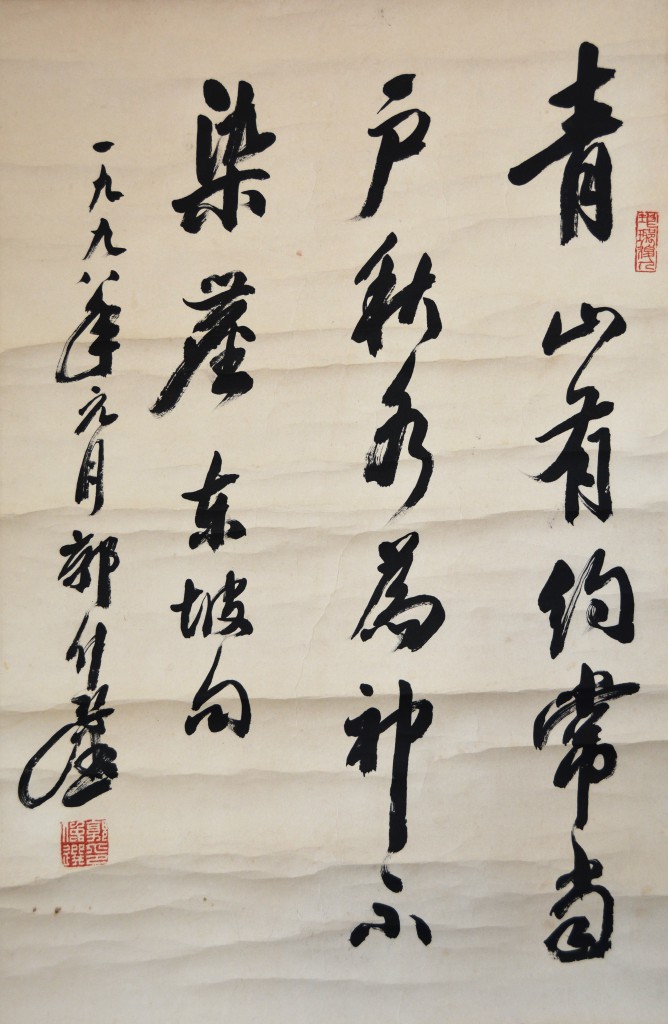 青山有約常當
户秋水為神不
染塵 东坡句
一九九八年元月 郭仲選